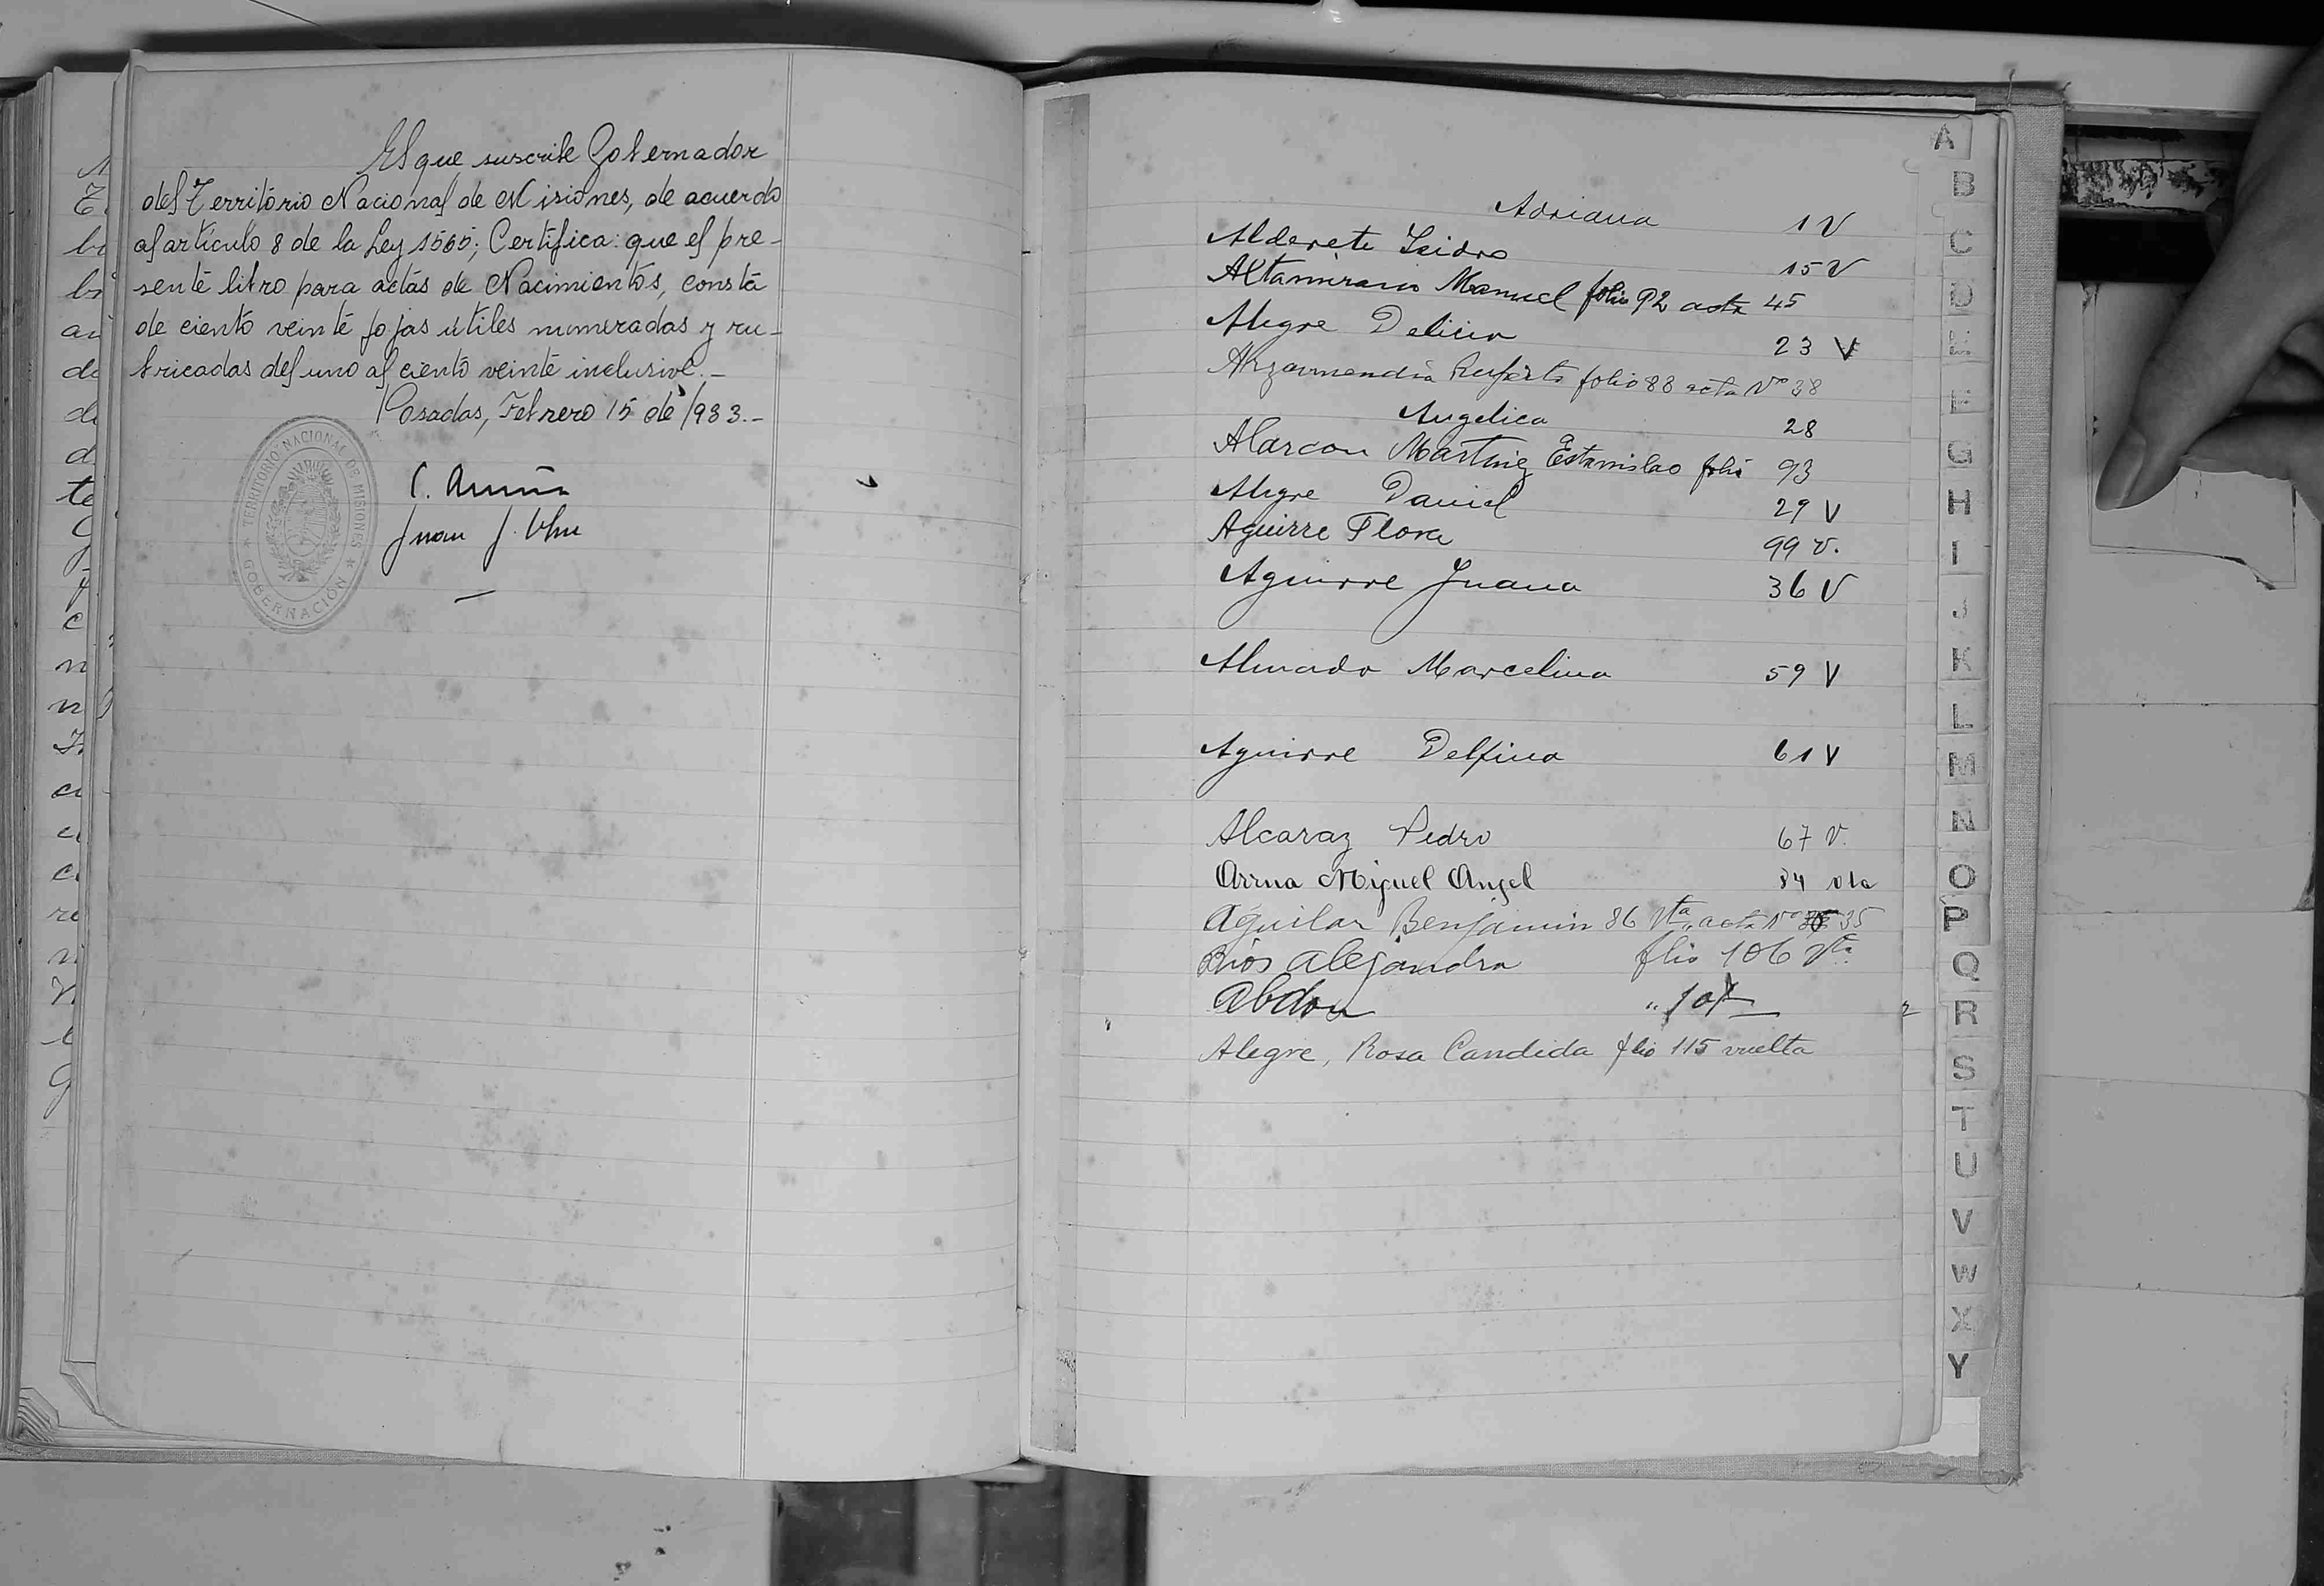 El que suscribe Gobernador
del Territorio Nacional de Misiones, de acuerdo
al artículo 8 de la Ley 1565; Certifica: que el pre-
sente libro para actas de Nacimientos, consta
de ciento veinte fojas útiles numeradas y ru-
bricadas del uno al ciento veinte inclusive.-
Posadas, Febrero 15 de 1933.-
TERRITORIO NACIONAL DE MISIONES
GOBERNACIÓN
Juan J.
Adriana 1 V
Alderete Isidro 15 V
Altamirano Manuel folio 92 acta 45
Alegre Delicia 23 V
Arzamendia Ruperto folio 88 acta Nº 38
Angelica 28
Alarcon Martinez Estanislao folio 93
Alegre Daniel 29 V
Aguirre Flora 99 v.
Aguirre Juana 36 V
Almado Marcelina 59 V
Aguirre Delfina 61 V
Alcaraz Pedro 67 V.
Arrua Miguel Angel 84 vta
Aguilar Benjamin 86 Vta acta Nº 35
Rios Alejandra folio 106 Vta
Abdon " 107
Alegre, Rosa Candida folio 115 vuelta
A
B
C
D
E
F
G
H
I
J
K
L
M
N
O
P
Q
R
S
T
U
V
W
X
Y